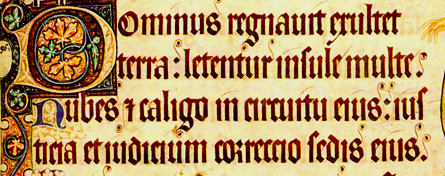 Dominus regnauit exultet
terra: letentur insule multe.
Nubes ⁊ caligo in circuitu eius: ius
ticia et iudicium correccio sedis eius.